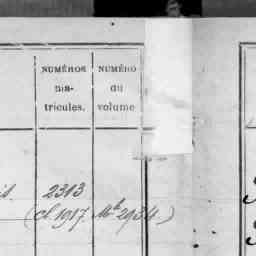 NUMÉROS
ma-
tricules.
NUMÉRO
du
volume
is. 2313
(cl 1917 Mle 2934)